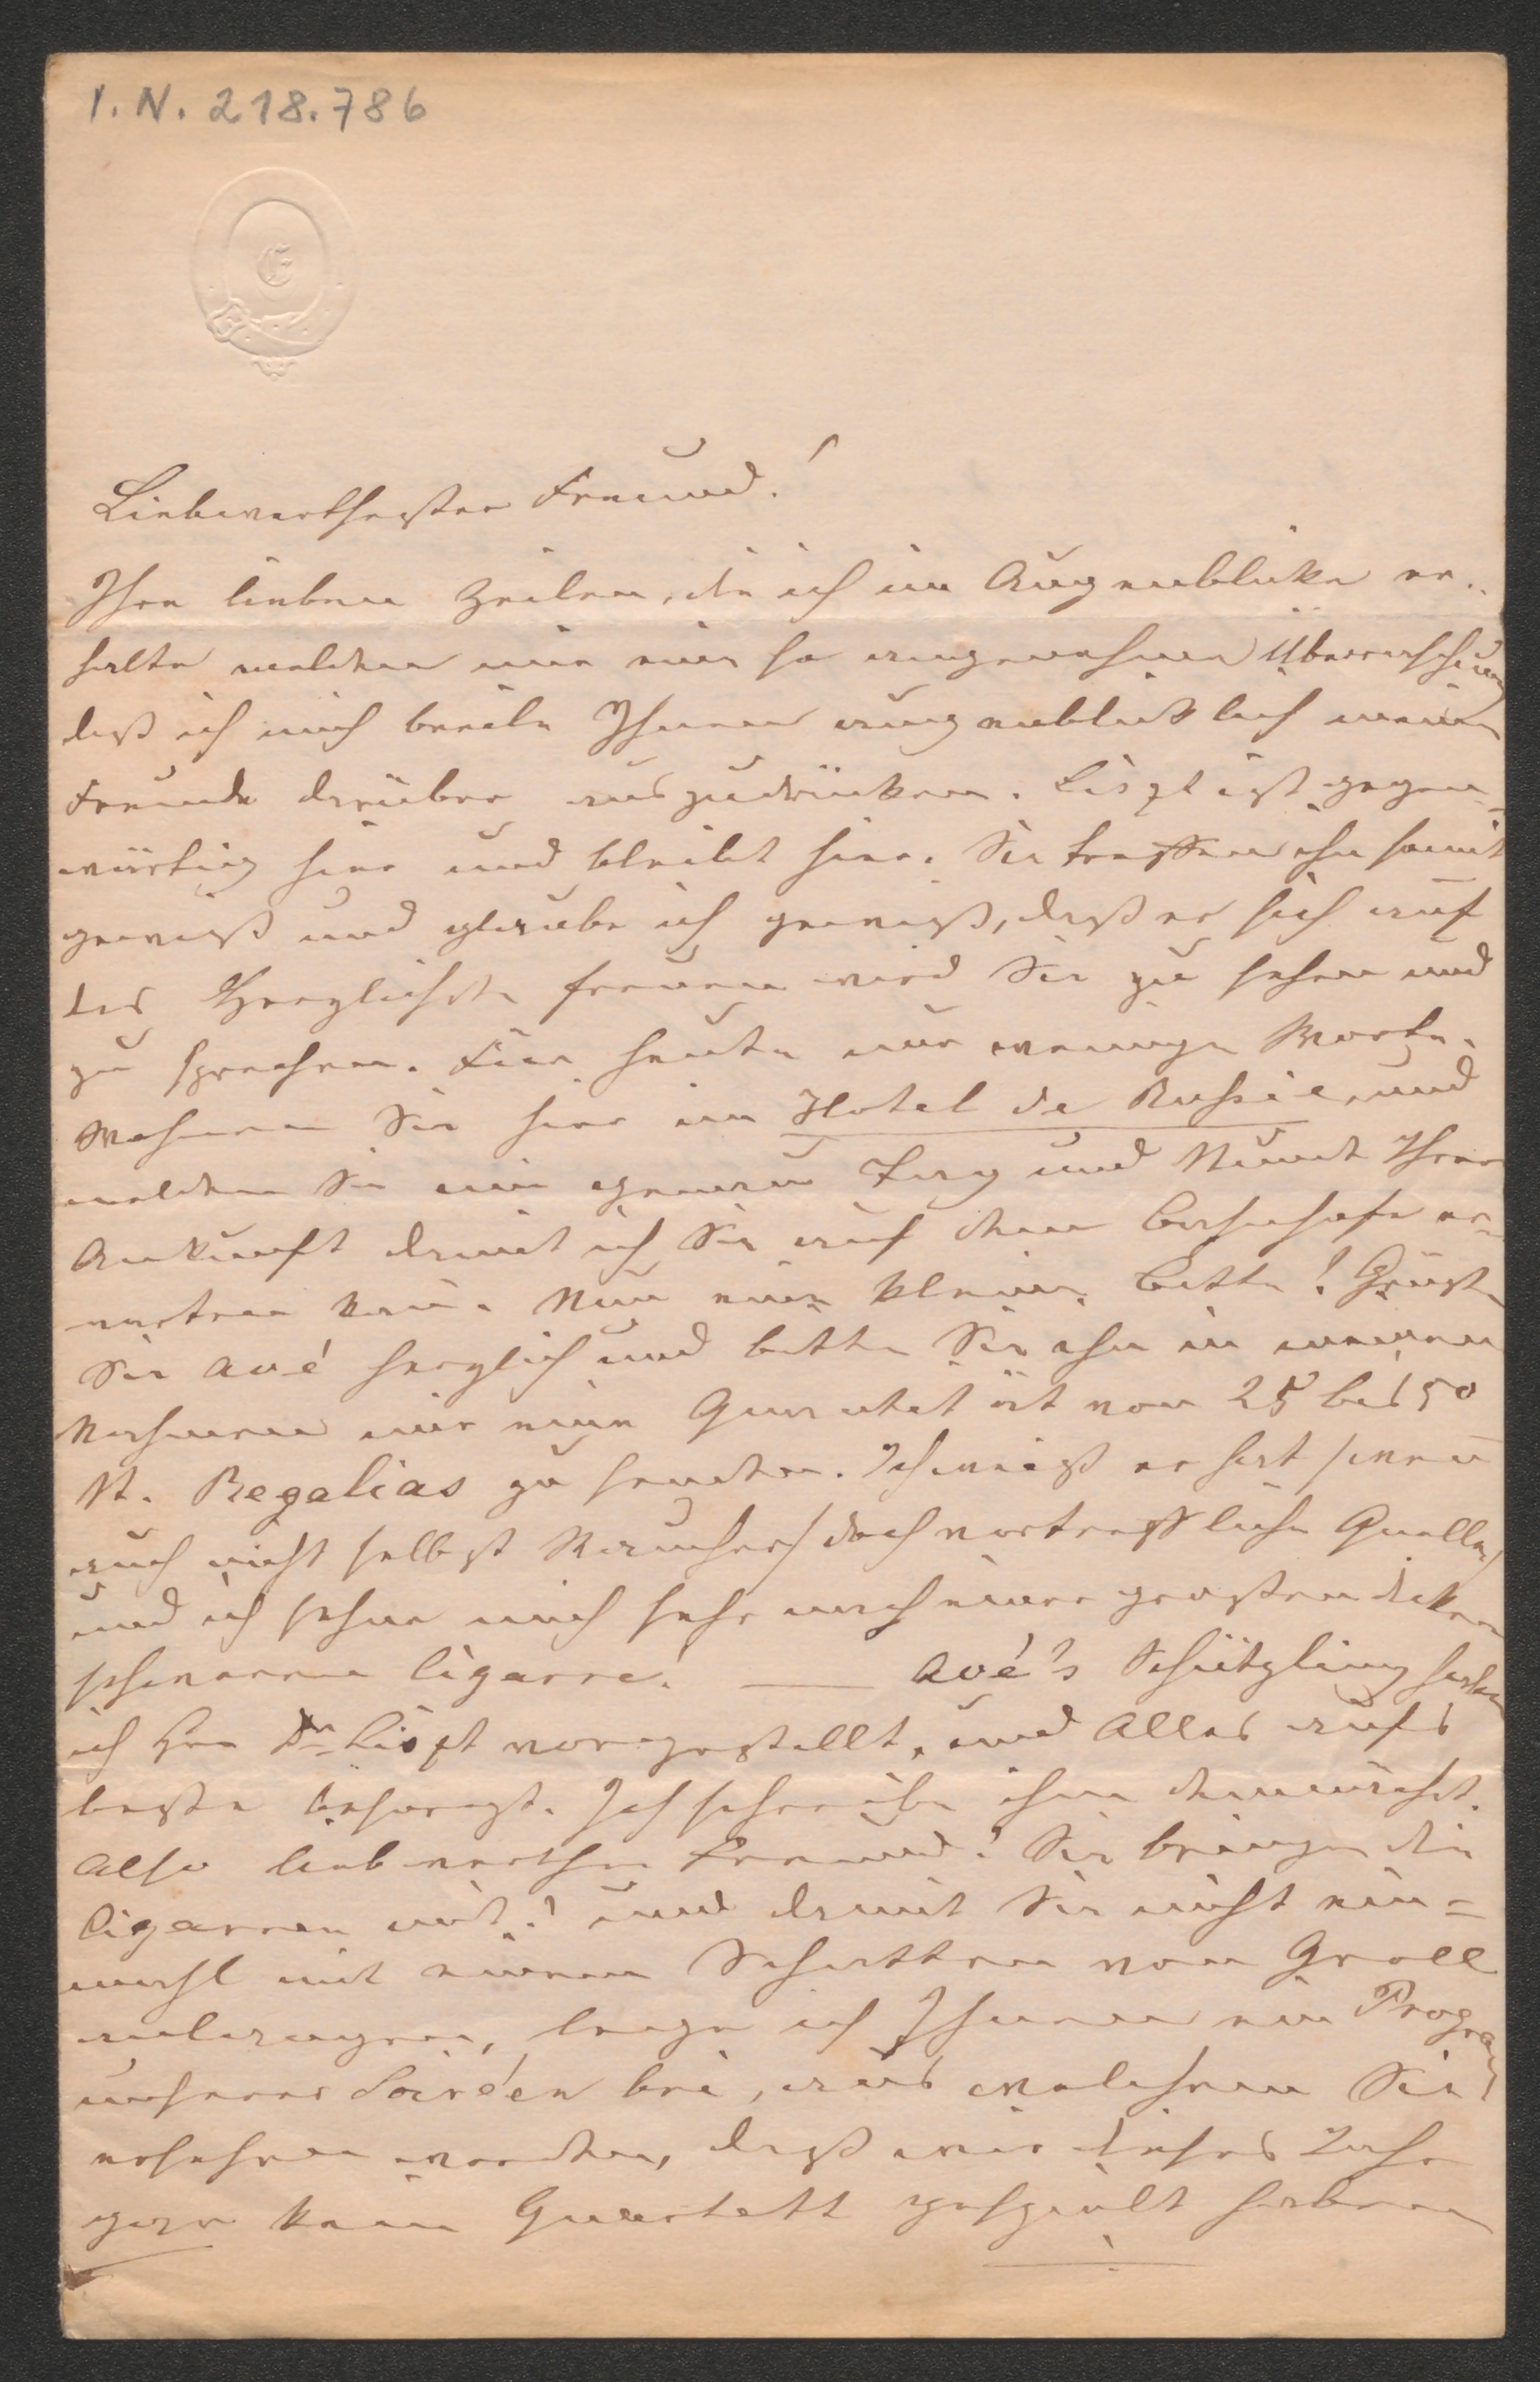 I. N. 218.786
E
Liebwerthester Freund!
Ihre lieben Zeilen, die ich im Augenblicke er-
halte melden mir eine so angenehme Überraschung
daß ich mich beeile Ihnen augenblicklich meine
Freude darüber auszudrücken. Liszt ist gegen-
wärtig hier und bleibt hier. Sie treffen ihn somit
gewiß und glaube ich gewiß, daß er sich auf
das Herzlichste freuen wird Sie zu sehen und
zu sprechen. Für heute nur wenige Worte.
Wohnen Sie hier im Hotel de Russie, und
melden Sie mir genau Tag und Stunde Ihrer
Ankunft damit ich Sie auf dem Bahnhofe er-
warten kann. Nun eine kleine Bitte! Grüßen
Sie Avé herzlich und bitten Sie ihn in meinem
Nahmen mir eine Quantität von 25 bis 50
St. Regalias zu senden. Ich weiß er hat /wenn
auch nicht selbst Raucher/ doch vortreffliche Quellen
und ich sehne mich sehr nach einer großen dicken
schweren Cigarre! — Avé's Schützling habe
ich Hrn Dr Liszt vorgestellt, und Alles aufs
beste besorgt. Ich schreibe ihm demnächst.
Also liebwerther Freund! Sie bringen die
Cigarren mit! und damit Sie nicht ein-
mahl mit einem Schatten von Groll
anlangen, lege ich Ihnen ein Program
unserer Soiréen bei, aus welchem Sie
ersehen werden, daß wir dieses Jahr
gar kein Quartett gespielt haben